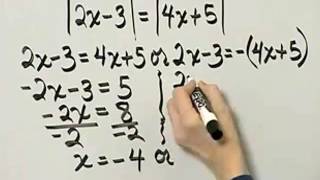 |2x-3| = |4x+5|
2x-3 = 4x+5 or 2x-3 = -(4x+5)
-2x-3 = 5
-2x = 8
-2 -2
x = -4 or
2